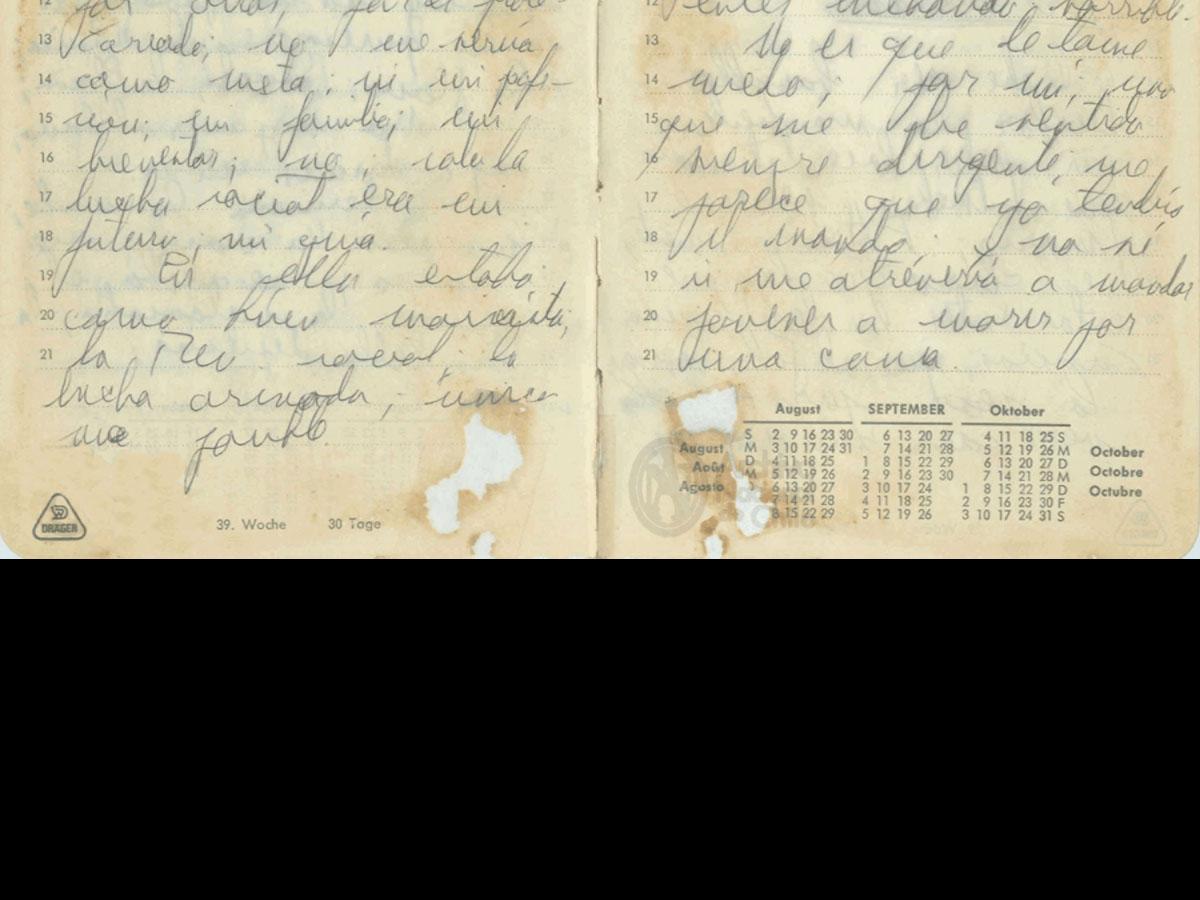 13 cariado; no me servía
14 como meta; ni mi profe-
15 sión; mi familia; mi
16 bienestar; no; solo la
17 lucha social era mi
18 futuro, mi guía.
19 En ella estaba
20 como buen marxista,
21 la Rev social; la
lucha armada; única
39. Woche 30 Tage
DRÄGER
12
13 No es que le tome
14 miedo; por mi, yo
15 que me he sentido
16 siempre dirigente, me
17 parece que yo tendría
18 el mando. no sé
19 si me atrevería a mandar
20 jovenes a morir por
21 una causa.
August SEPTEMBER Oktober
S 2 9 16 23 30 6 13 20 27 4 11 18 25 S
August M 3 10 17 24 31 7 14 21 28 5 12 19 26 M October
Août D 4 11 18 25 1 8 15 22 29 6 13 20 27 D Octobre
Agosto M 5 12 19 26 2 9 16 23 30 7 14 21 28 M Octubre
6 13 20 27 3 10 17 24 1 8 15 22 29 D
7 14 21 28 4 11 18 25 2 9 16 23 30 F
8 15 22 29 5 12 19 26 3 10 17 24 31 S